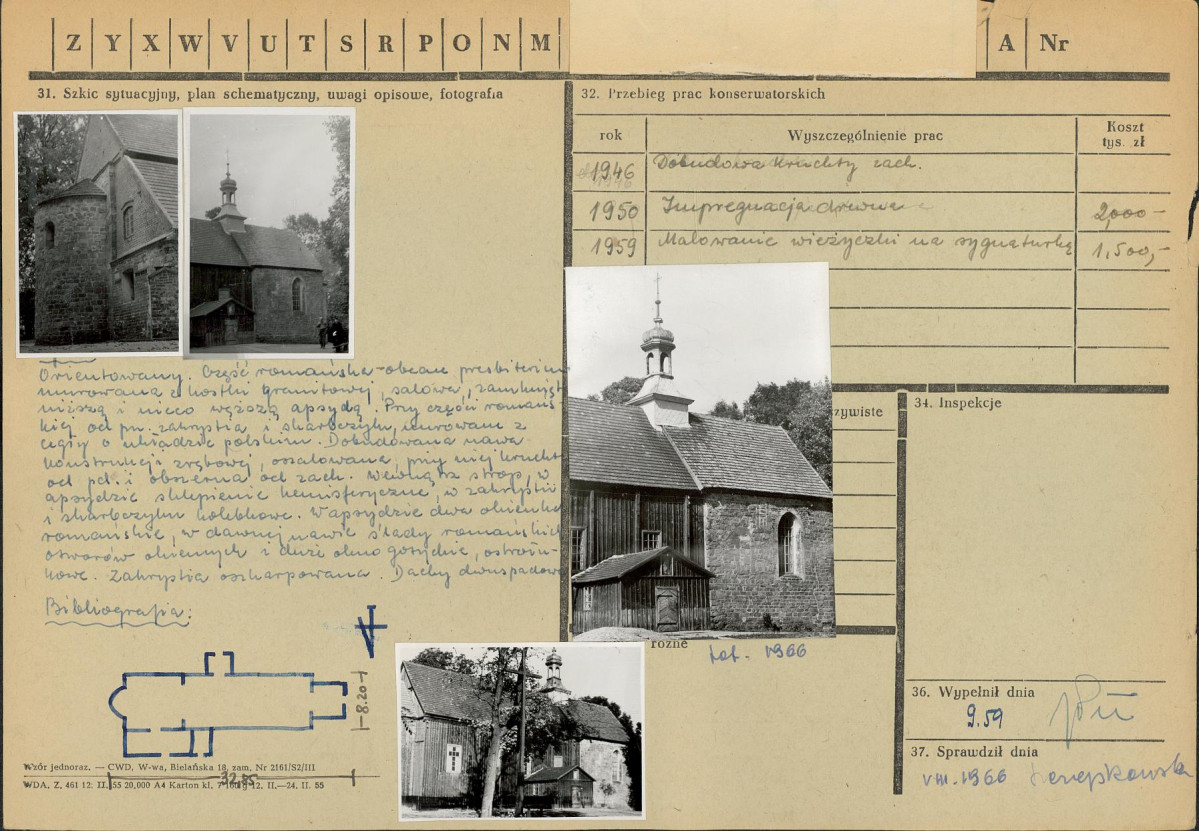 Z Y X W V U T S R P O N M
A Nr
31. Szkic sytuacyjny, plan schematyczny, uwagi opisowe, fotografia
Orientowany. Część romańska - obecn. presbiterium
murowana z kostki granitowej, salowa, zamknięt
niższą i nieco węższą apsydą. Przy części romańs-
kiej od pn. zakrystia i skarbczyk, murowane z
cegły o układzie polskim. Dobudowana nawa
konstrukcji zrębowej, oszalowana, przy niej krucht
od pd. i obszerna od zach. Wewnątrz strop, w
apsydzie sklepienie hemisferyczne, w zakrystii
i skarbczyku kolebkowe. W apsydzie dwa okienka
romańskie, w dawnej nawie ślady romańskich
otworów okiennych i duże okno gotyckie, ostrołu-
kowe. Zakrystia oszkarpowana. Dachy dwuspadowe
Bibliografia:
8.20
32,85
Wzór jednoraz. — CWD, W-wa, Bielańska 18, zam. Nr 2161/S2/III
WDA. Z. 461 12: II. 55 20,000 A4 Karton kl. 12. II.—24. II. 55
32. Przebieg prac konserwatorskich
rok
Wyszczególnienie prac
Koszt
tys. zł
1946
Dobudowa kruchty zach.
1950
Impregnacja drewna
2,000-
1959
Malowanie wieżyczki na sygnaturkę
1,500,-
zywiste
34. Inspekcje
różne
fot. 1966
36. Wypełnił dnia
9.59
37. Sprawdził dnia
VIII.1966